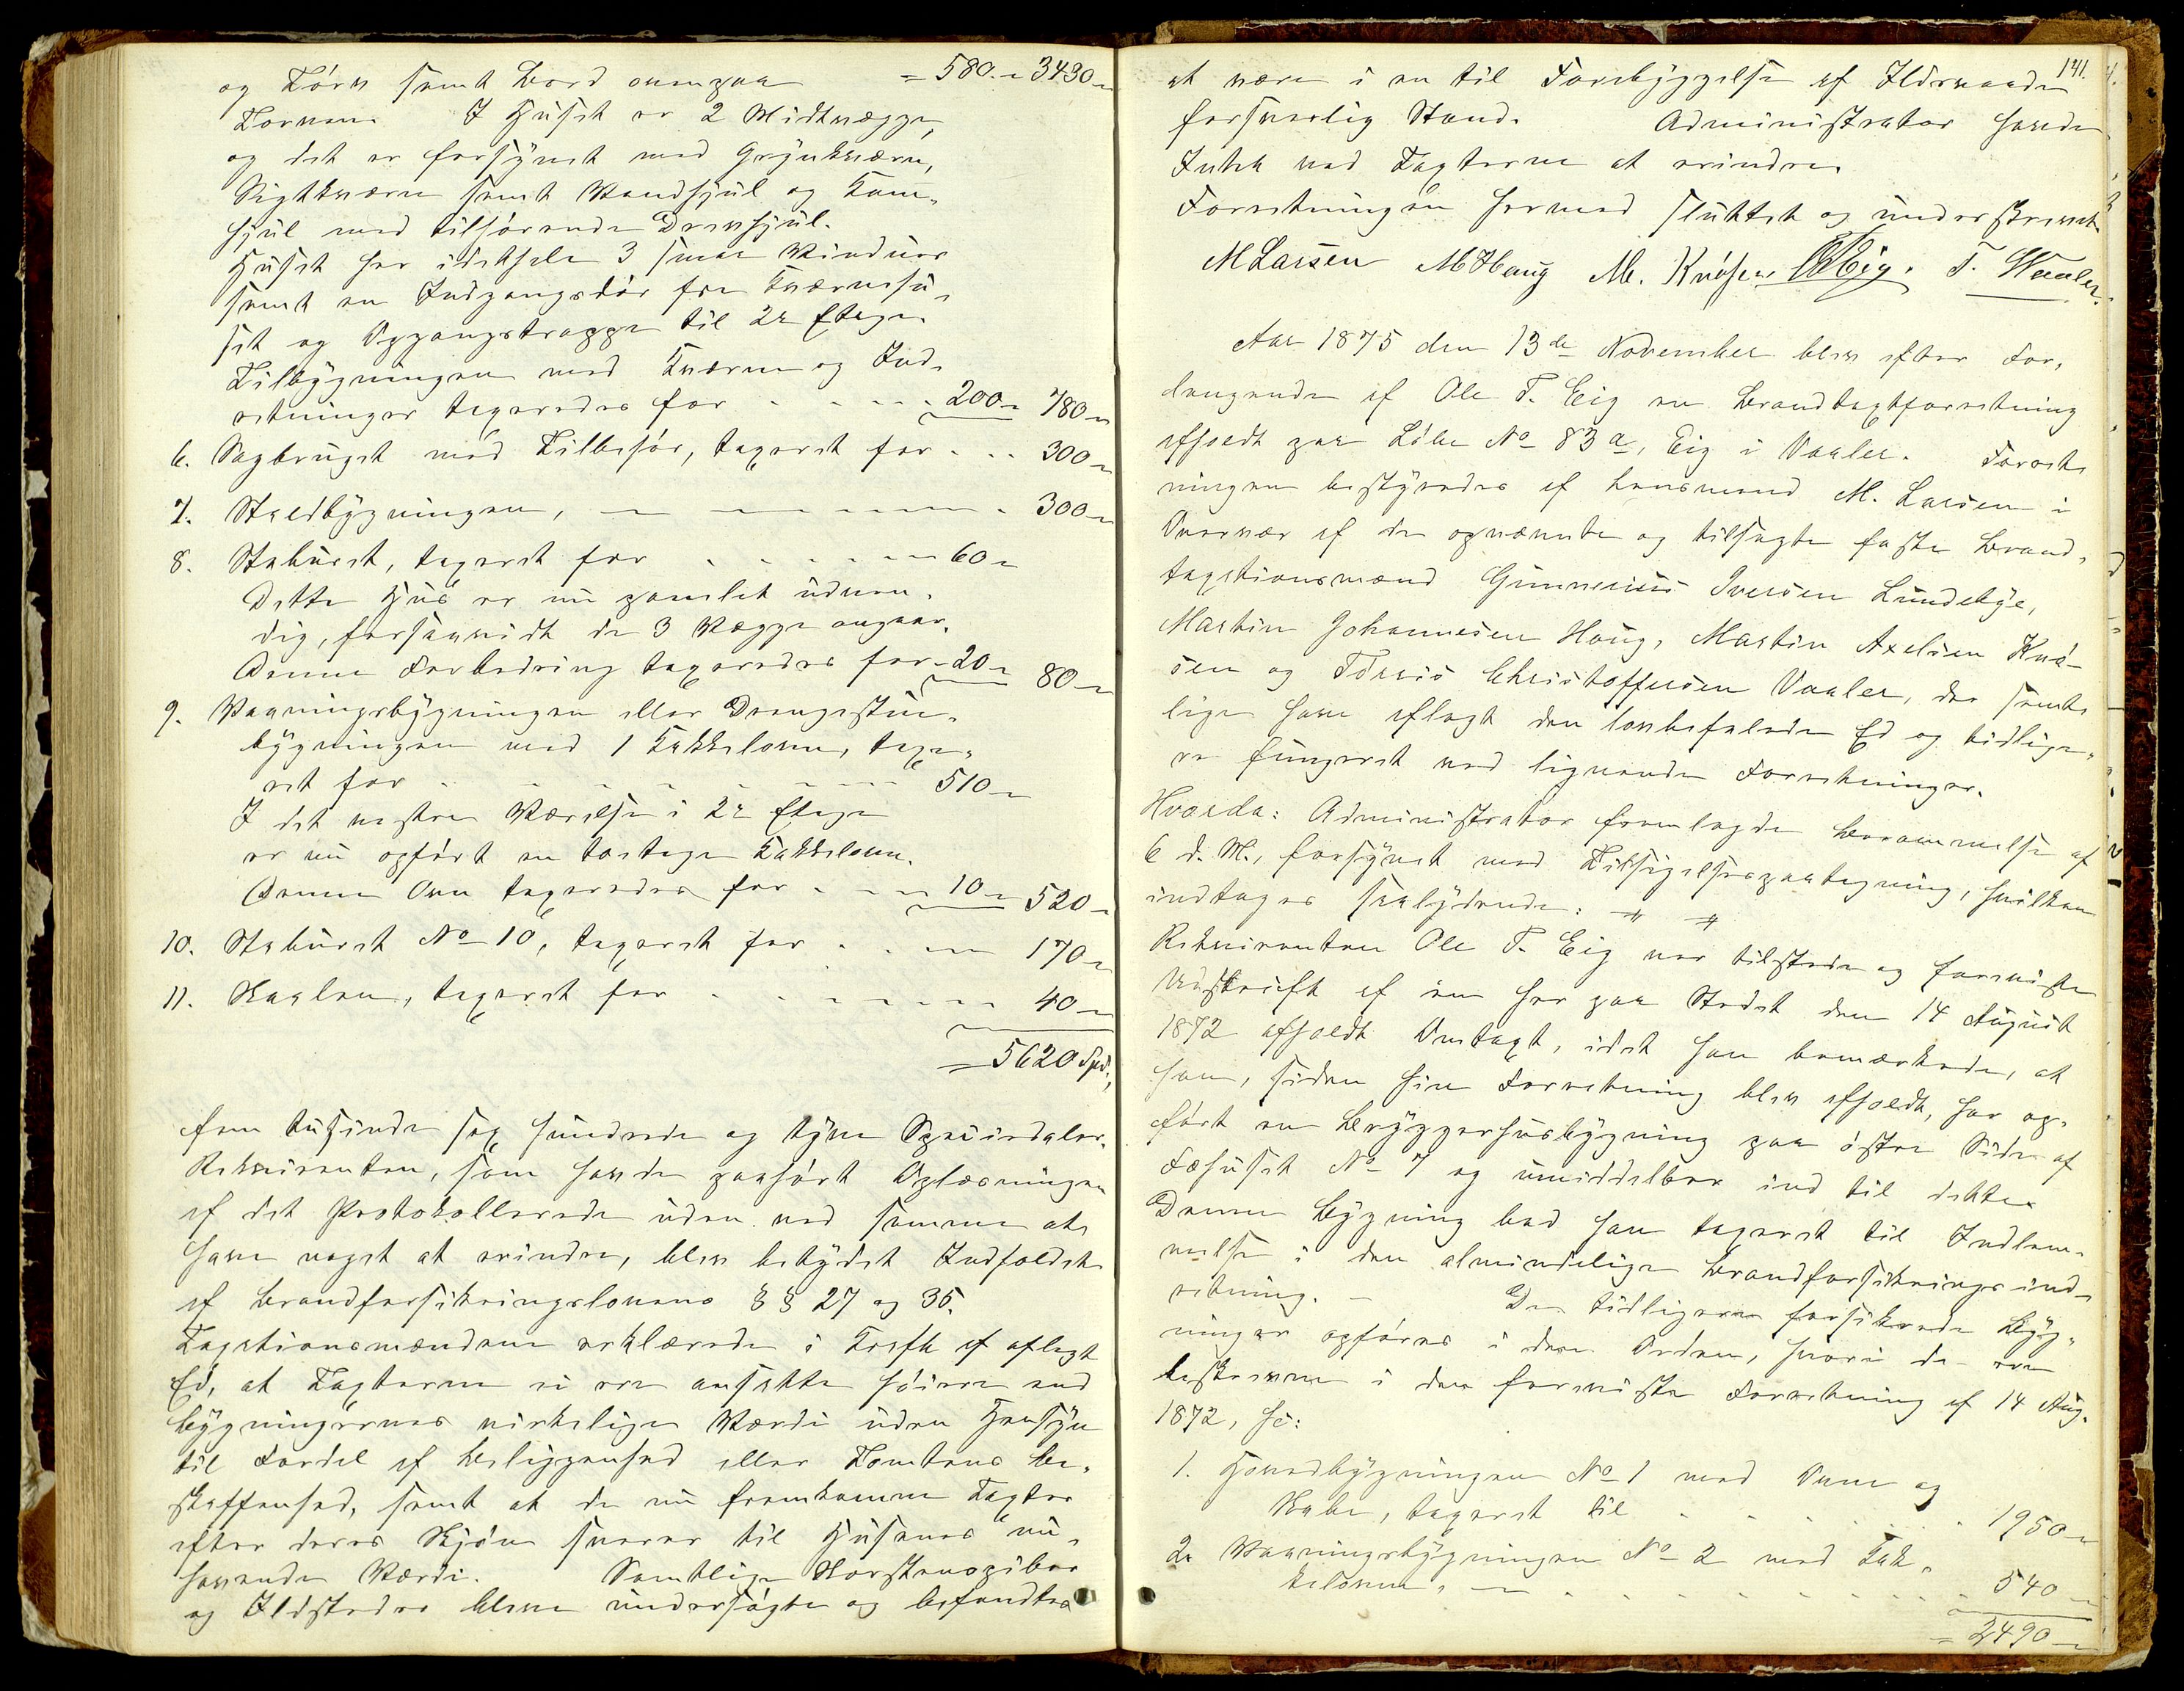 og Törv samt Bord ovenpaa = 580 - 3430 -
Torven. I Huset er 2 Midtvægge,
og det er forsynet med Grynkværn,
Sigtkværn samt Vandhjul og Kam-
hjul med tilhørende Drevhjul.
Huset har idethele 3 smaa Vinduer
samt en Indgangsdør fra Kværnehu-
set og Opgangstrappe til 2n Etage.
Tilbygningen med Kværn og Ind-
retninger taxeredes for - - - - 200 - 780 -
6. Sagbruget med Tilbehør, taxeret for - - - 300 -
7. Staldbygningen, — — — - 300 -
8. Staburet, taxeret for - - - - 60 -
Dette Hus er nu panelet udven-
dig, forsaavidt de 3 Vægge angaar.
Denne Forbedring taxeredes for - 20 - 80 -
9. Vaaningsbygningen eller Drengestue-
bygningen med 1 Kakkelovn, taxe-
ret for - - - - - 510 -
I det vestre Værelse i 2n Etage
er nu opført en toetages Kakkelovn.
Denne Ovn taxeredes for - - - 10 - 520 -
10. Staburet No 10, taxeret for - - - 170 -
11. Skaalen, taxeret for - - - - - 40 -
= 5620 Spd.,
fem tusinde sex hundrede og tyve Speciedaler.
Rekvirenten, som havde paahørt Oplæsningen
af det Protokollerede uden ved samme at
have noget at erindre, blev betydet Indholdet
af Brandforsikringslovens §§ 27 og 35.
Taxationsmændene erklærede i Kraft af aflagt
Ed, at Taxterne ei ere ansatte høiere end
Bygningernes virkelige Værdi uden Hensyn
til Fordel af Beliggenhed eller Tomtens Be-
skaffenhed, samt at de nu fremkomne Taxter
efter deres Skjøn svarer til Husenes nu-
havende Værdi. Samtlige Skorstenspiber
og Ildsteder bleve undersøgte og befandtes
141.
at være i en til Forebyggelse af Ildsvaade
forsvarlig Stand. Administrator havde
Intet ved Taxterne at erindre.
Forretningen hermed sluttet og underskrevet.
M Larsen M Haug M. Knøsen OTEig. T. Vaaler.
Aar 1875 den 13de November blev efter For-
langende af Ole T. Eig en Brandtaxtforretning
afholdt paa Løbe No 83a, Eig i Vaaler. Forret-
ningen bestyredes af Lensmand M. Larsen i
Overvær af de opnævnte og tilsagte faste Brand-
taxationsmænd Gunnerius Iversen Lundebye,
Martin Johannesen Haug, Martin Axelsen Knø-
sen og Torvis Christoffersen Vaaler, der samt-
lige have aflagt den lovbefalede Ed og tidlige-
re fungeret ved lignende Forretninger.
Hvorda: Administrator fremlagde Berammelse af
6 d. M., forsynet med Tilsigelsespaategning, hvilken
indtages saalydende: ⌗ ⌗
Rekvirenten Ole T. Eig var tilstede og foreviste
Udskrift af en her paa Stedet den 14 August
1872 afholdt Omtaxt, idet han bemærkede, at
han, siden hin Forretning blev afholdt, har op-
ført en Bryggerhusbygning paa østre Side af
Fæhuset No 7 og umiddelbar ind til dette.
Denne Bygning bad han taxeret til Indlem-
melse i den almindelige Brandforsikringsind-
retning. - De tidligere forsikrede Byg-
ninger opføres i den Orden, hvori de ere
beskrevne i den foreviste Forretning af 14 Aug.
1872, so:
1. Hovedbygningen No 1 med Ovne og
Skabe, taxeret til - - - - - - 1950 -
2. Vaaningsbygningen No 2 med Kak-
kelovne, — - - - - - - - 540 -
= 2490 -